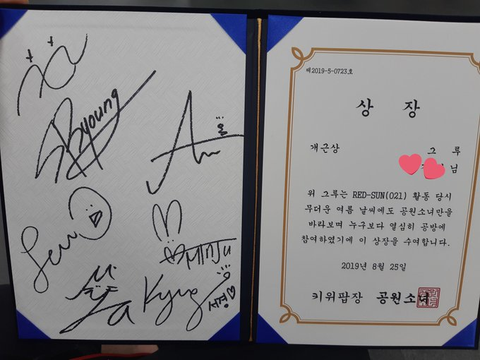 Byoung
Minju
Kyung
서경
제2019-5-0723호
상 장
개근상
그 루
님
위 그루는 RED-SUN(021) 활동 당시
무더운 여름 날씨에도 공원소녀만을
바라보며 누구보다 열심히 공방에
참여하였기에 이 상장을 수여합니다.
2019년 8월 25일
키위팝장 공원소녀